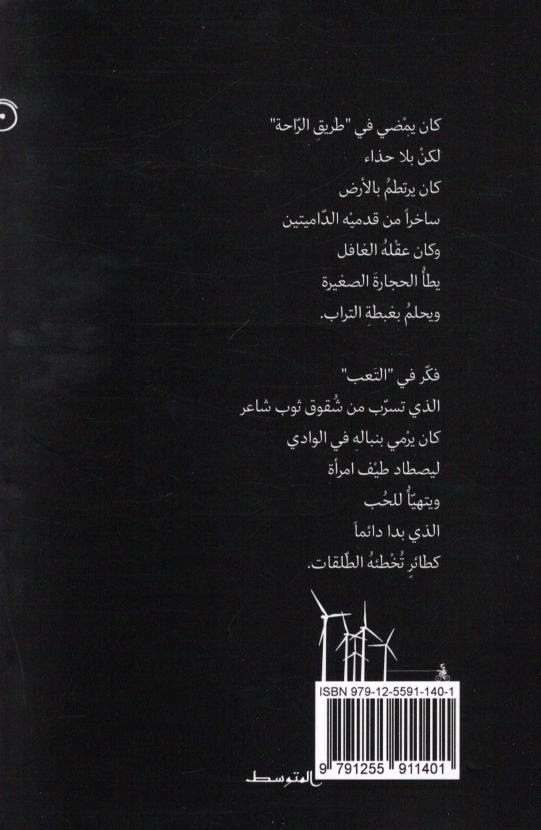 كان يمْضي في "طريقِ الرّاحة"
لكنْ بلا حذاء
كان يرتطمُ بالأرض
ساخراً من قدميْه الدّاميتين
وكان عقْلهُ الغافل
يطأُ الحجارةَ الصغيرة
ويحلمُ بغبطةِ التراب.
فكّر في "التَعب"
الذي تسرّب من شُقوق ثوب شاعر
كان يرْمي بنبالهِ في الوادي
ليصطاد طيْف امرأة
ويتهيّأُ للحُب
الذي بدا دائماً
كطائرٍ تُخْطئهُ الطّلقات.
ISBN 979-12-5591-140-1
9 791255 911401
المتوسط